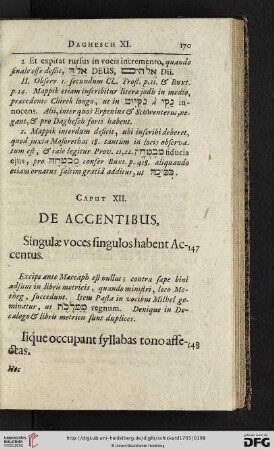 DAGHESCH XI. 170
2 Et expirat rursus in vocis incremento, quando
finale esse desiit, אֱלֹהַּ DEUS, אֱלֹהִים Dii.
II. Observ 1. secundum CL. Trost. p. 11. & Buxt.
p. 14. Mappik etiam inscribitur litera jodh in medio,
præcedente Chirek longo, ut in נְקִיִּים à נָקִי in-
nocens. Alii, inter quos Erpenius & Schwenterus, ne-
gant, & pro Daghesch forti habent.
2. Mappik interdum deficit, ubi inscribi deberet,
quod juxta Masorethas 18. tantum in locis observa-
tum est, & tale legitur Prov. 21, 22. מבטחה fiducia
ejus, pro מבטחה confer Buxt. p. 418. aliquando
etiam ornatus saltem gratiâ additur, ut
CAPUT XII.
DE ACCENTIBUS,
Singulæ voces singulos habent Ac- 147
centus.
Excipe ante Maccaph est nullus; contra sæpe bini
adsunt in libris metricis, quando ministri, loco Me-
theg, succedunt. Item Pasta in vocibus Milhel go-
minatur, ut מַמְלֶכֶת regnum. Denique in De-
calogo & libris metricis sunt duplices.
Iique occupant syllabas tono affe- 148
ctas.
Hoc
http://digi.ub.uni-heidelberg.de/diglit/schickard1703/0198
© Universitätsbibliothek Heidelberg
UNIVERSITÄTS-
BIBLIOTHEK
HEIDELBERG